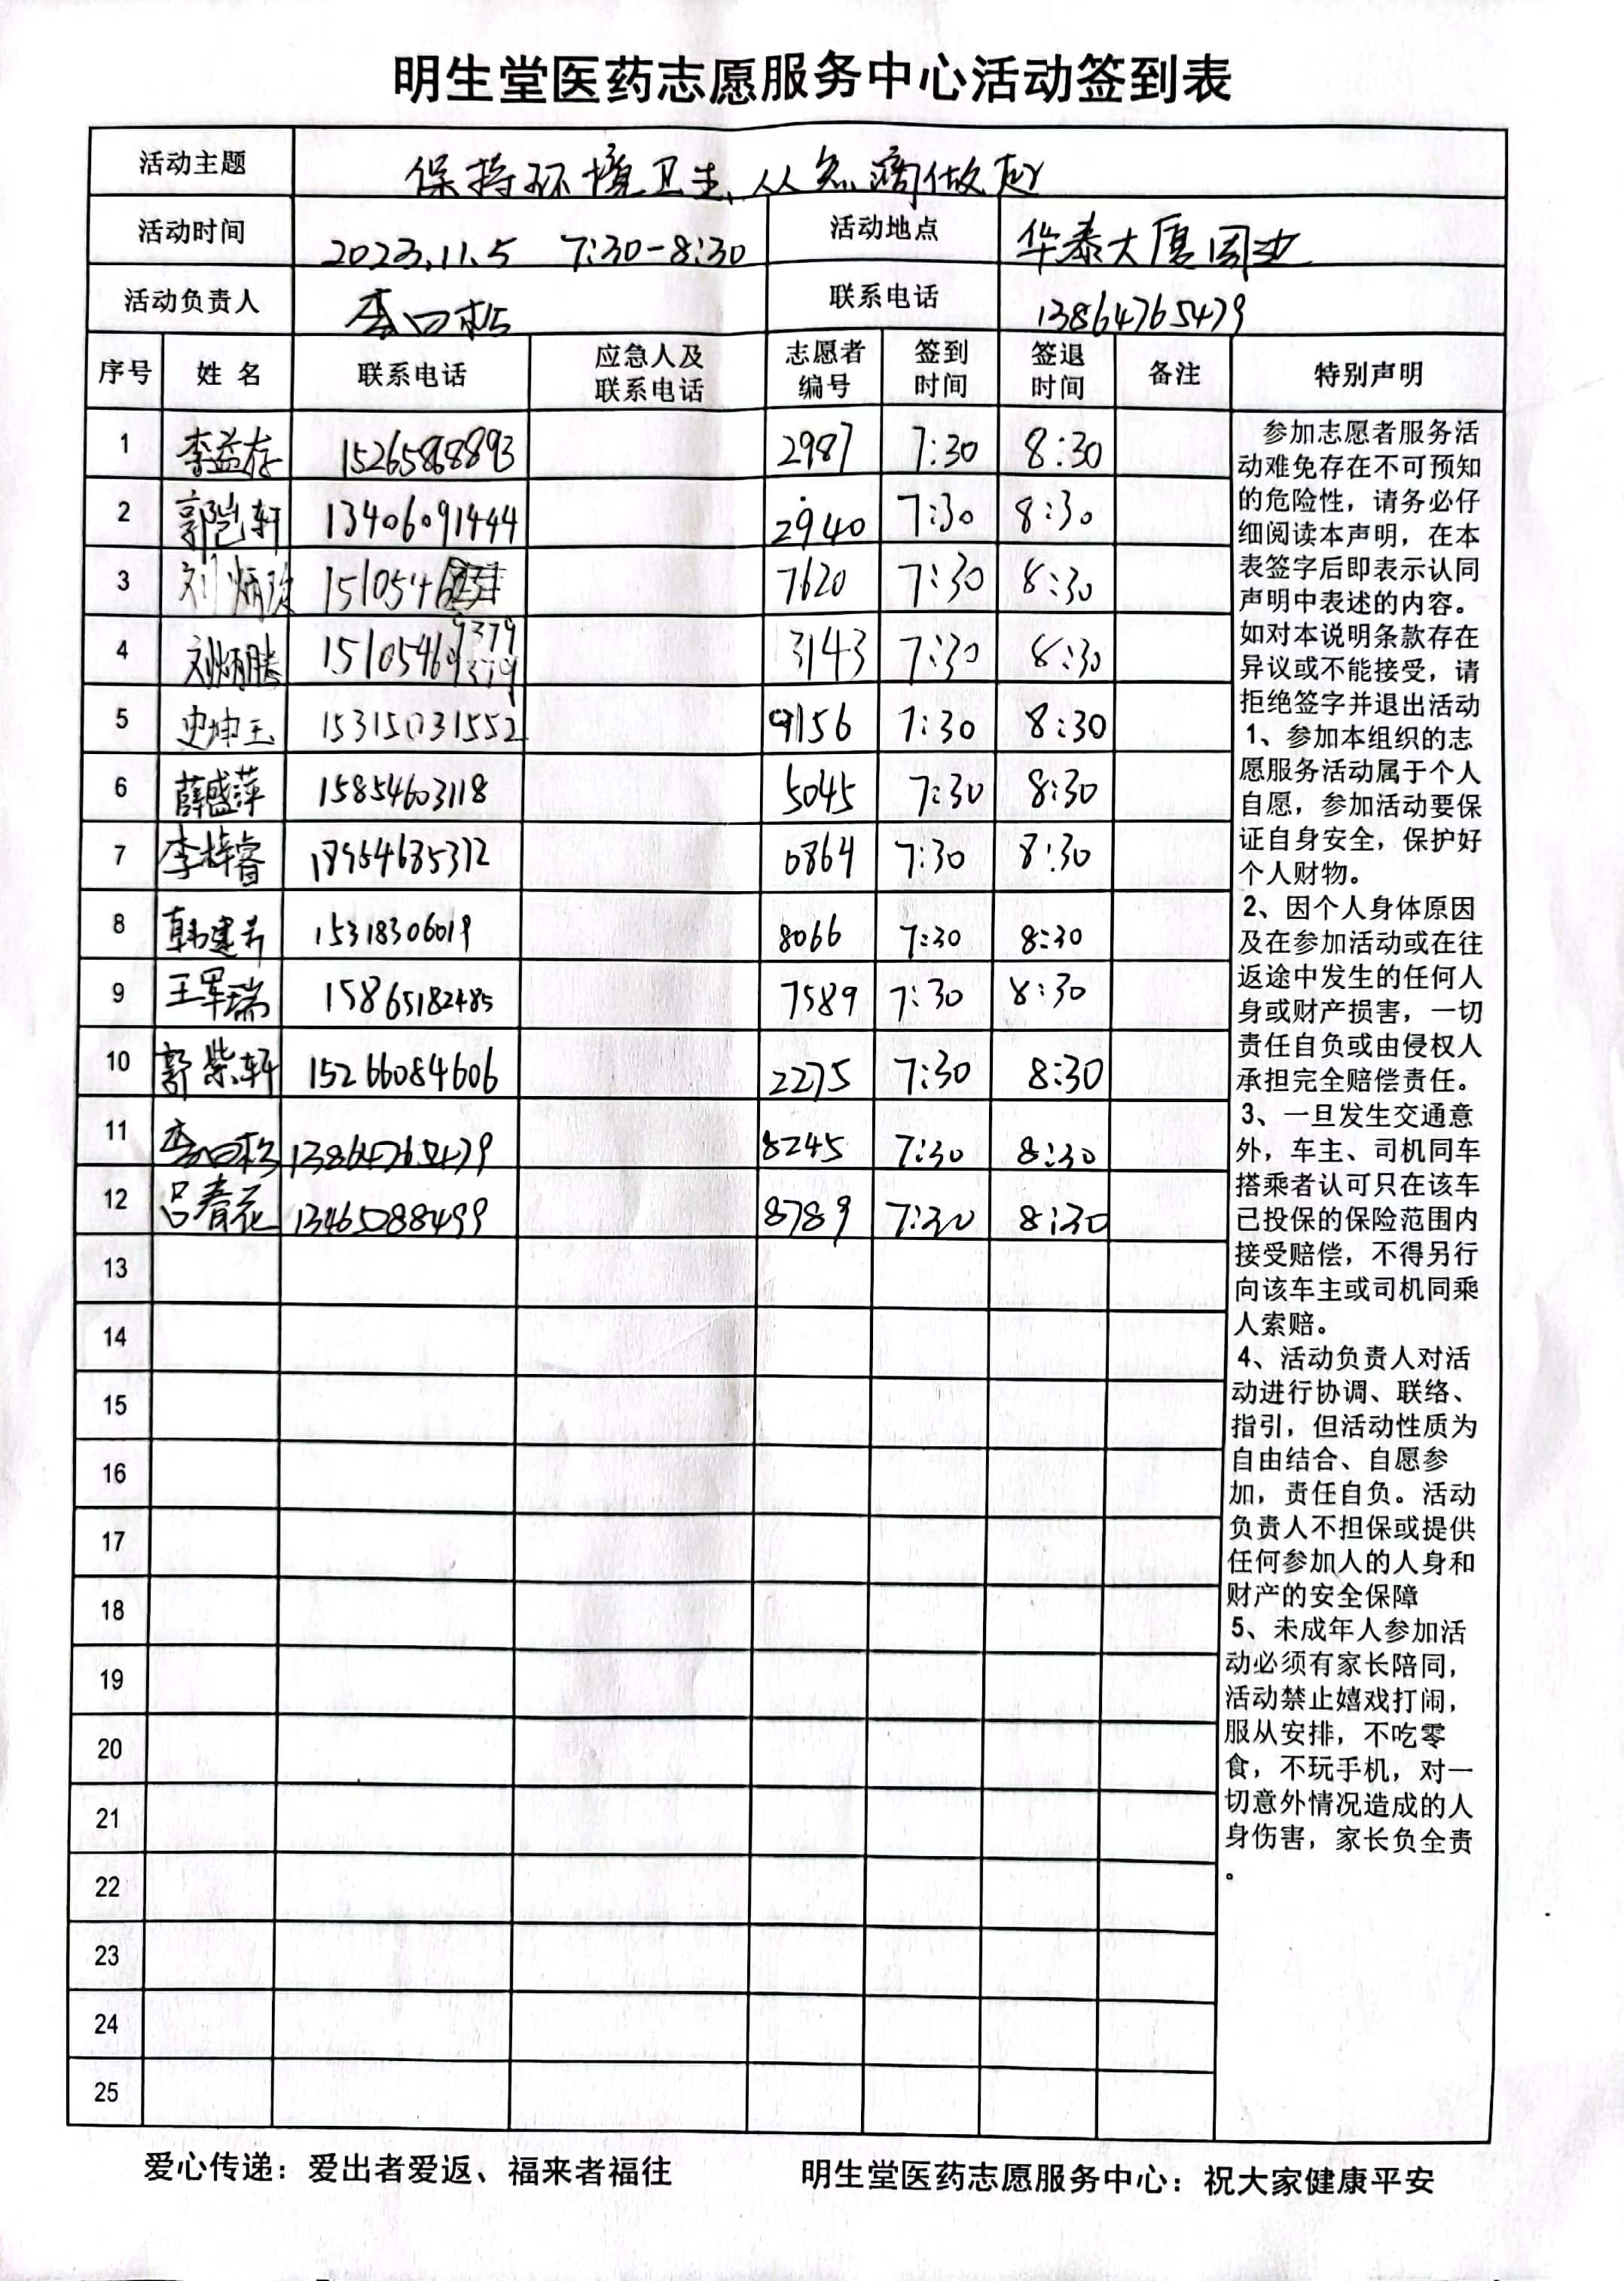 明生堂医药志愿服务中心活动签到表
活动主题 保持环境卫生、从点滴做起
活动时间 2023.11.5 7:30-8:30 活动地点 华泰大厦周边
活动负责人 联系电话 13864765479
序号 姓名 联系电话 应急人及联系电话 志愿者编号 签到时间 签退时间 备注 特别声明
1 李益存 15265868893 2987 7:30 8:30
2 郭凯轩 13406091444 2940 7:30 8:30
3 刘炳 1510546 7620 7:30 8:30
4 刘炳腾 15105469379 3143 7:30 8:30
5 史坤玉 9156 7:30 8:30
6 薛盛萍 15854603118 5045 7:30 8:30
7 李梓睿 18964685312 0864 7:30 8:30
8 韩建芳 15318306019 8066 7:30 8:30
9 王军瑞 15865182485 7589 7:30 8:30
10 郭紫轩 15266084606 2275 7:30 8:30
11 13864765479 8245 7:30 8:30
12 吕春花 13465088499 8789 7:30 8:30
13
14
15
16
17
18
19
20
21
22
23
24
25
参加志愿者服务活
动难免存在不可预知
的危险性，请务必仔
细阅读本声明，在本
表签字后即表示认同
声明中表述的内容。
如对本说明条款存在
异议或不能接受，请
拒绝签字并退出活动
1、参加本组织的志
愿服务活动属于个人
自愿，参加活动要保
证自身安全，保护好
个人财物。
2、因个人身体原因
及在参加活动或在往
返途中发生的任何人
身或财产损害，一切
责任自负或由侵权人
承担完全赔偿责任。
3、一旦发生交通意
外，车主、司机同车
搭乘者认可只在该车
已投保的保险范围内
接受赔偿，不得另行
向该车主或司机同乘
人索赔。
4、活动负责人对活
动进行协调、联络、
指引，但活动性质为
自由结合、自愿参
加，责任自负。活动
负责人不担保或提供
任何参加人的人身和
财产的安全保障
5、未成年人参加活
动必须有家长陪同，
活动禁止嬉戏打闹，
服从安排，不吃零
食，不玩手机，对一
切意外情况造成的人
身伤害，家长负全责
。
爱心传递：爱出者爱返、福来者福往 明生堂医药志愿服务中心：祝大家健康平安